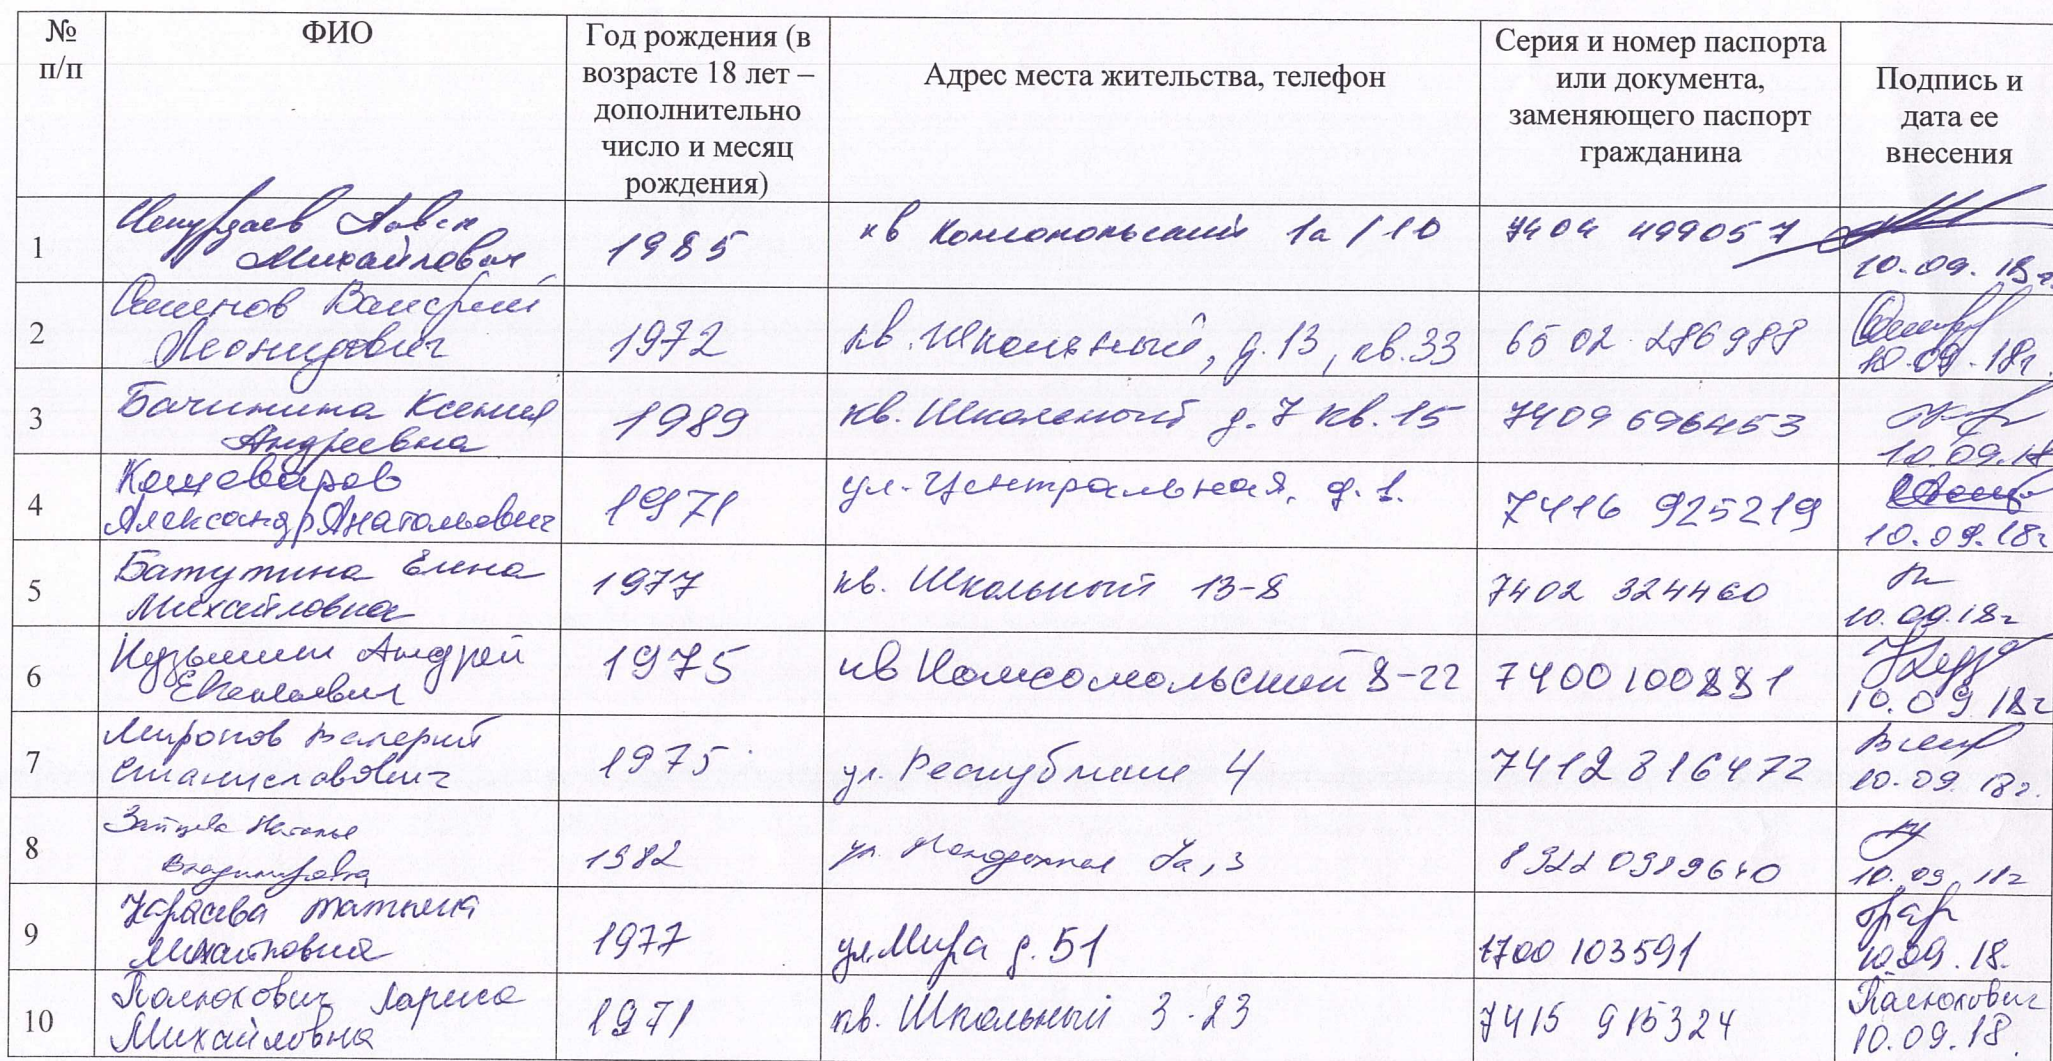 № п/п
ФИО
Год рождения (в возрасте 18 лет – дополнительно число и месяц рождения)
Адрес места жительства, телефон
Серия и номер паспорта или документа, заменяющего паспорт гражданина
Подпись и дата ее внесения
1
Михайлович
1985
кв 1а / 10
7404 499057
10.09.18г
2
Семенов Валерий
Леонидович
1972
кв. Школьный, д.13, кв.33
6502 286988
10.09.18г.
3
Бачинина Ксения
Андреевна
1989
кв. Школьный д.7 кв.15
7409 696453
10.09.18
4
Кошеваров
Александр Анатольевич
1971
ул. Центральная, д.1.
7416 925219
10.09.18г
5
Батутина Елена
Михайловна
1977
кв. Школьный 13-8
7402 324460
10.09.18г
6
Андрей
1975
кв Комсомольский 8-22
7400 100881
10.09.18г
7
Миронов Валерий
Станиславович
1975
ул. Республики 4
7412 816472
10.09.18г.
8
Зайцева Наталья
Владимировна
1982
ул.
10.09.18г
9
Татьяна
Михайловна
1977
ул. Мира д.51
103591
10.09.18.
10
Лариса
Михайловна
1971
кв. Школьный 3-23
7415 915324
10.09.18